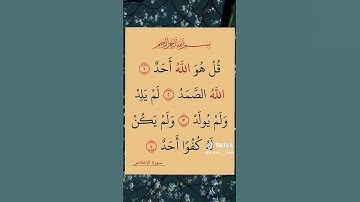 بِسْمِ اللَّهِ الرَّحْمَٰنِ الرَّحِيمِ
قُلْ هُوَ اللَّهُ أَحَدٌ ١
اللَّهُ الصَّمَدُ ٢ لَمْ يَلِدْ
وَلَمْ يُولَدْ ٣ وَلَمْ يَكُنْ
لَّهُ كُفُوًا أَحَدٌ ٤
سورة الإخلاص
TikTok